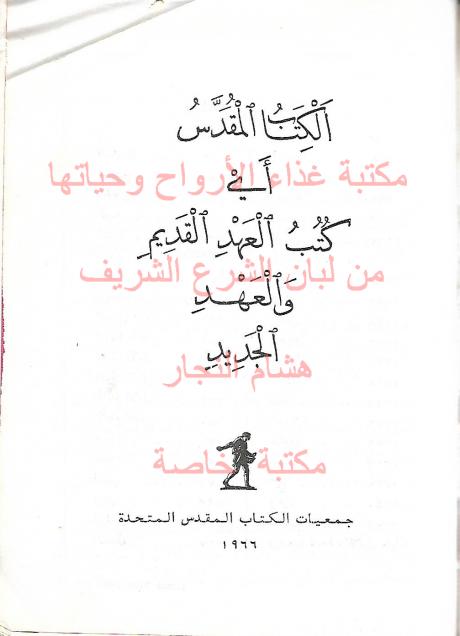 اَلْكِتَابُ ٱلْمُقَدَّسُ
مكتبة غذاء الأرواح وحياتها
أَيْ
كُتُبُ ٱلْعَهْدِ ٱلْقَدِيمِ
من لبان الشرع الشريف
وَٱلْعَهْدِ
ٱلْجَدِيدِ
هشام النجار
مكتبة خاصة
جمعيات الكتاب المقدس المتحدة
١٩٦٦